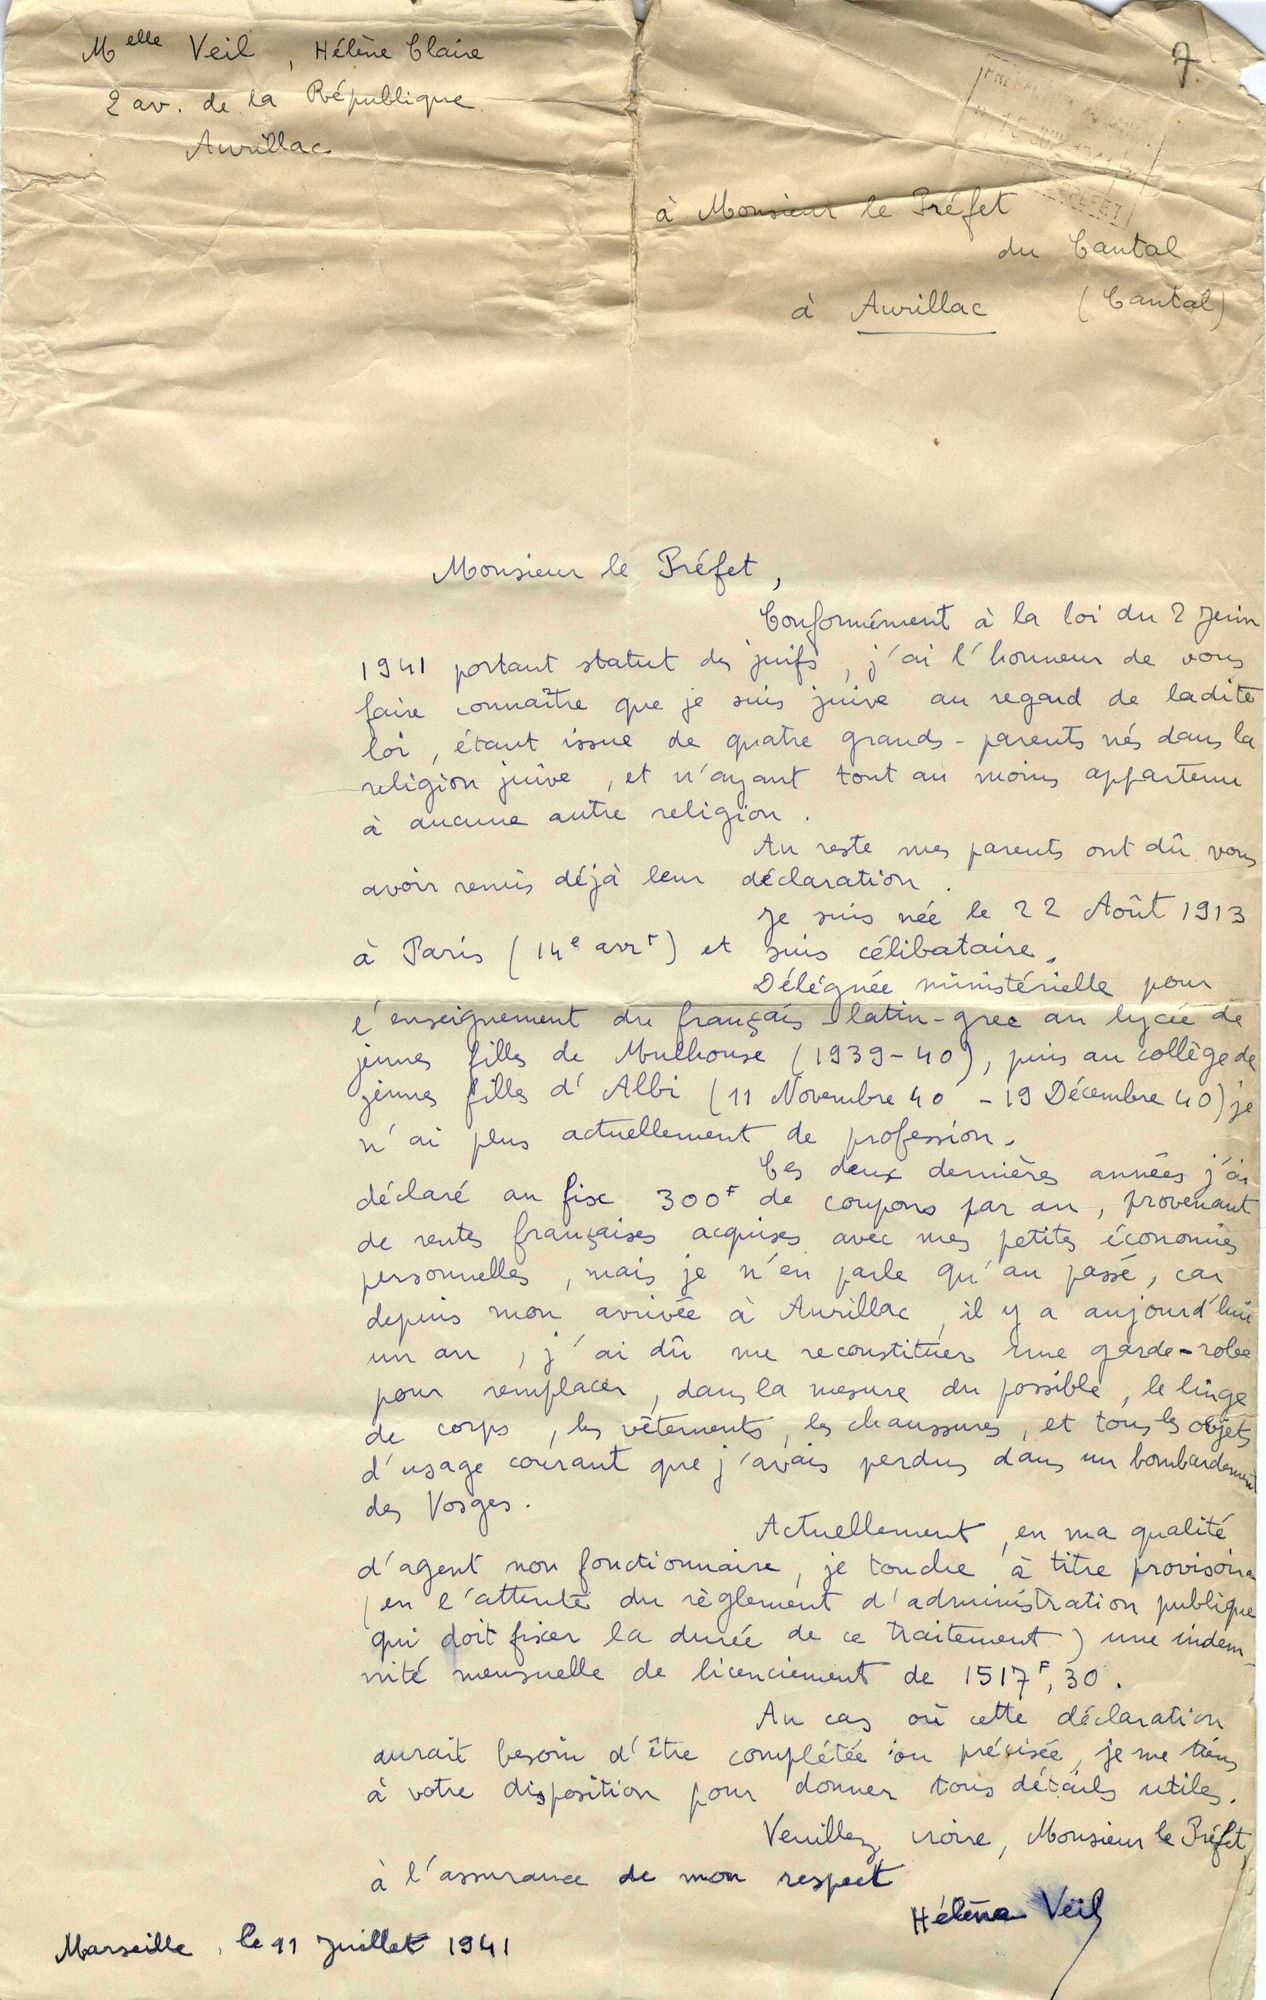 Melle Veil, Hélène Claire
2 av. de la République
Aurillac
7
15 JUIL 1941
à Monsieur le Préfet
du Cantal
à Aurillac (Cantal)
Monsieur le Préfet,
Conformément à la loi du 2 Juin
1941 portant statut des juifs, j'ai l'honneur de vous
faire connaître que je suis juive au regard de ladite
loi, étant issue de quatre grands-parents nés dans la
religion juive, et n'ayant tout au moins appartenu
à aucune autre religion.
Au reste mes parents ont dû vous
avoir remis déjà leur déclaration.
Je suis née le 22 Août 1913
à Paris (14e arrt) et suis célibataire.
Déléguée ministérielle pour
l'enseignement du français-latin-grec au lycée de
jeunes filles de Mulhouse (1939-40), puis au collège de
jeunes filles d'Albi (11 Novembre 40 - 19 Décembre 40) je
n'ai plus actuellement de profession.
Ces deux dernières années j'ai
déclaré au fisc 300F de coupons par an, provenant
de rentes françaises acquises avec mes petites économies
personnelles, mais je n'en parle qu'au passé, car
depuis mon arrivée à Aurillac, il y a aujourd'hui
un an, j'ai dû me reconstituer une garde-robe
pour remplacer, dans la mesure du possible, le linge
de corps, les vêtements, les chaussures, et tous les objets
d'usage courant que j'avais perdus dans un bombardement
des Vosges.
Actuellement, en ma qualité
d'agent non fonctionnaire, je touche à titre provisoire
(en l'attente du règlement d'administration publique
qui doit fixer la durée de ce traitement) une indem-
nité mensuelle de licenciement de 1517F,30.
Au cas où cette déclaration
aurait besoin d'être complétée ou précisée, je me tiens
à votre disposition pour donner tous détails utiles.
Veuillez croire, Monsieur le Préfet,
à l'assurance de mon respect
Hélène Veil
Marseille, le 11 Juillet 1941